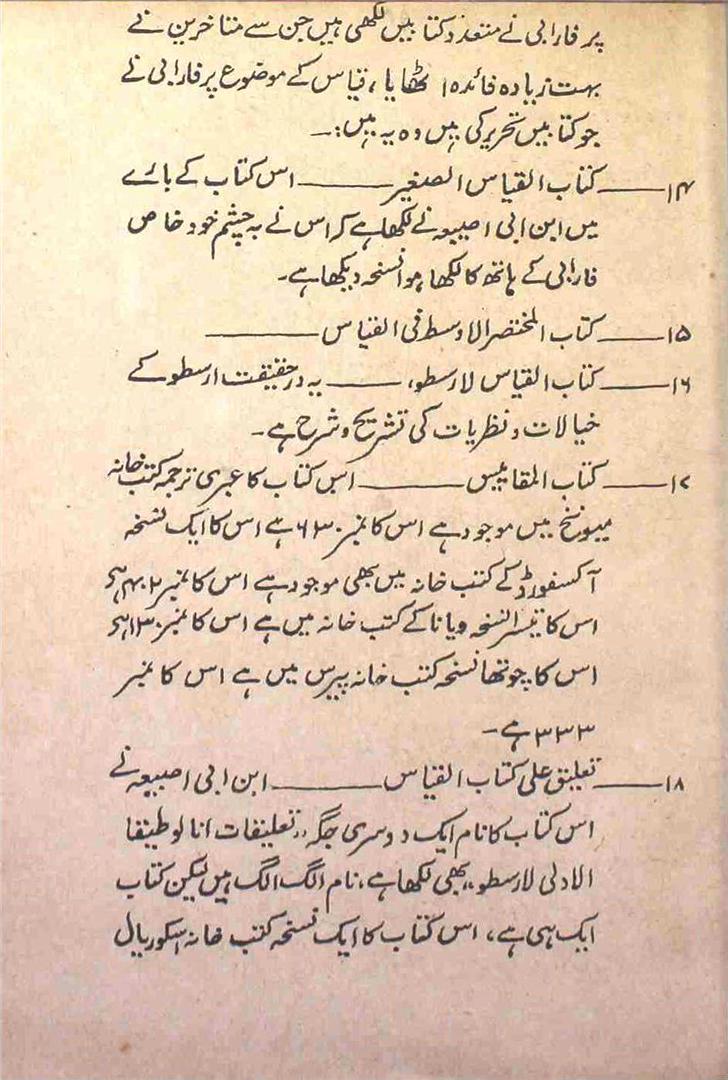 پر فارابی نے متعدد کتابیں لکھی ہیں جن سے متاخرین نے
بہت زیادہ فائدہ اٹھایا، قیاس کے موضوع پر فارابی نے
جو کتابیں تحریر کی ہیں وہ یہ ہیں:۔
۱۴——کتاب القیاس الصغیر——اس کتاب کے بارے
میں ابن ابی اصیبعہ نے لکھا ہے کہ اس نے بہ چشم خود خاص
فارابی کے ہاتھ کا لکھا ہوا نسخہ دیکھا ہے۔
۱۵——کتاب المختصر الاوسط فی القیاس——
۱۶——کتاب القیاس لارسطو،——یہ در حقیقت ارسطو کے
خیالات و نظریات کی تشریح و شرح ہے۔
۱۷——کتاب المقائیس——اس کتاب کا عبری ترجمہ کتب خانہ
میونخ میں موجود ہے اس کا نمبر ۶۳۰ ہے اس کا ایک نسخہ
آکسفورڈ کے کتب خانہ میں بھی موجود ہے اس کا نمبر ۴۰۲ ہے
اس کا تیسرا نسخہ ویانا کے کتب خانہ میں ہے اس کا نمبر ۱۳۰ ہے
اس کا چوتھا نسخہ کتب خانہ پیرس میں ہے اس کا نمبر
۳۳۳ ہے۔
۱۸——تعلیق علی کتاب القیاس——ابن ابی اصیبعہ نے
اس کتاب کا نام ایک دوسری جگہ ،،تعلیقات انالوطیقا
الاولی لارسطو،، بھی لکھا ہے، نام الگ الگ ہیں لیکن کتاب
ایک ہی ہے، اس کتاب کا ایک نسخہ کتب خانہ اسکوریال